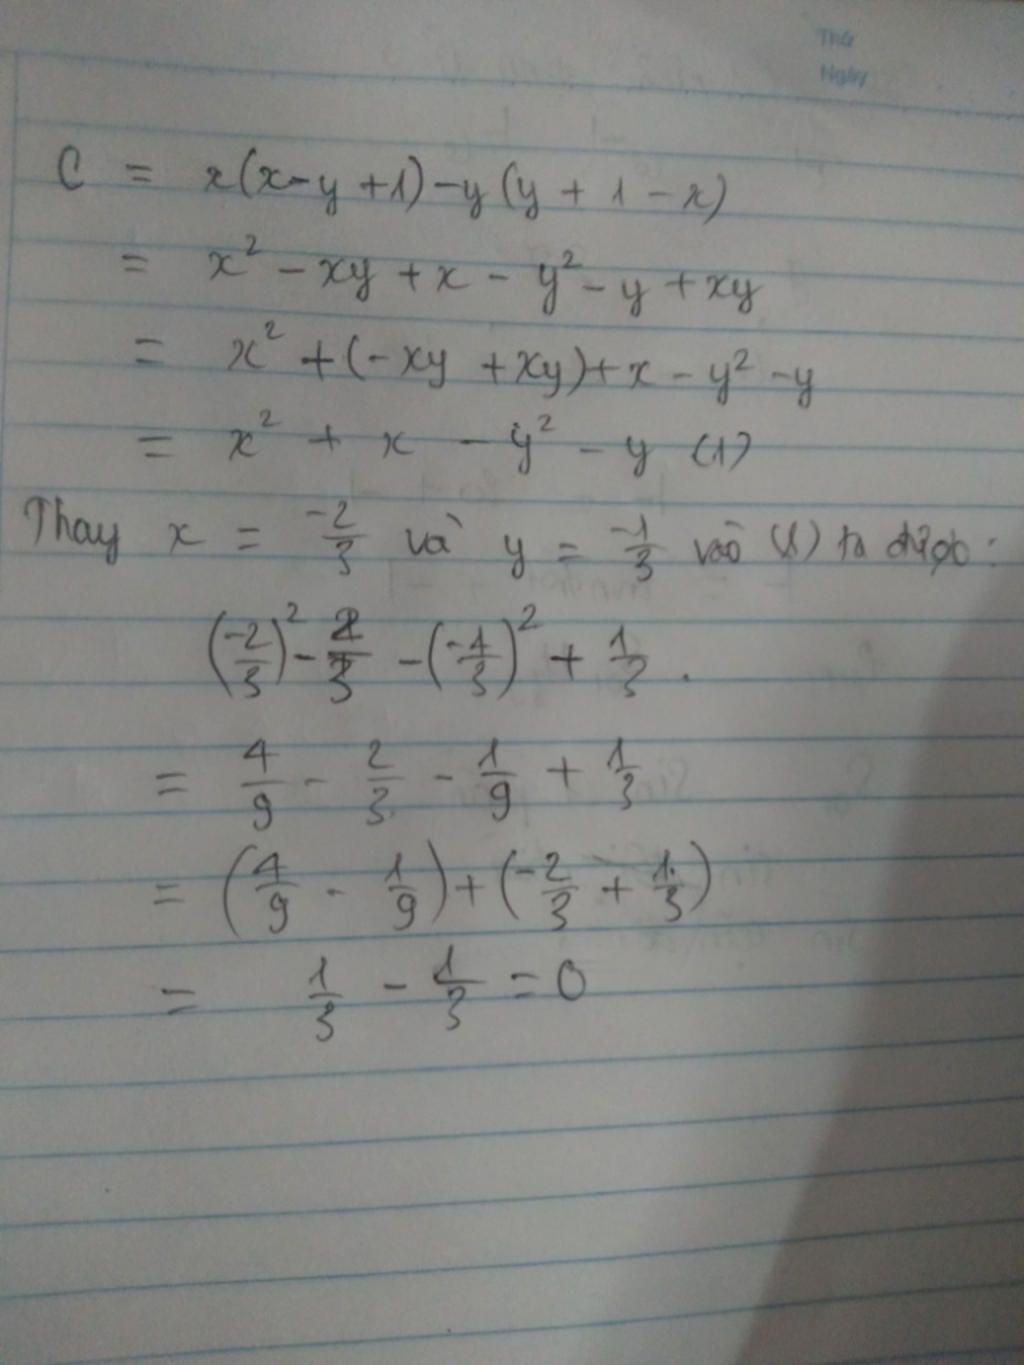 Thứ
Ngày
C = x(x-y+1)-y(y+1-x)
= x² - xy + x - y² - y + xy
= x² + (-xy + xy) + x - y² - y
= x² + x - y² - y (1)
Thay x = -2/3 và y = -1/3 vào (1) ta được:
(-2/3)² - 2/3 - (-1/3)² + 1/3.
= 4/9 - 2/3 - 1/9 + 1/3
= (4/9 - 1/9) + (-2/3 + 1/3)
= 1/3 - 1/3 = 0